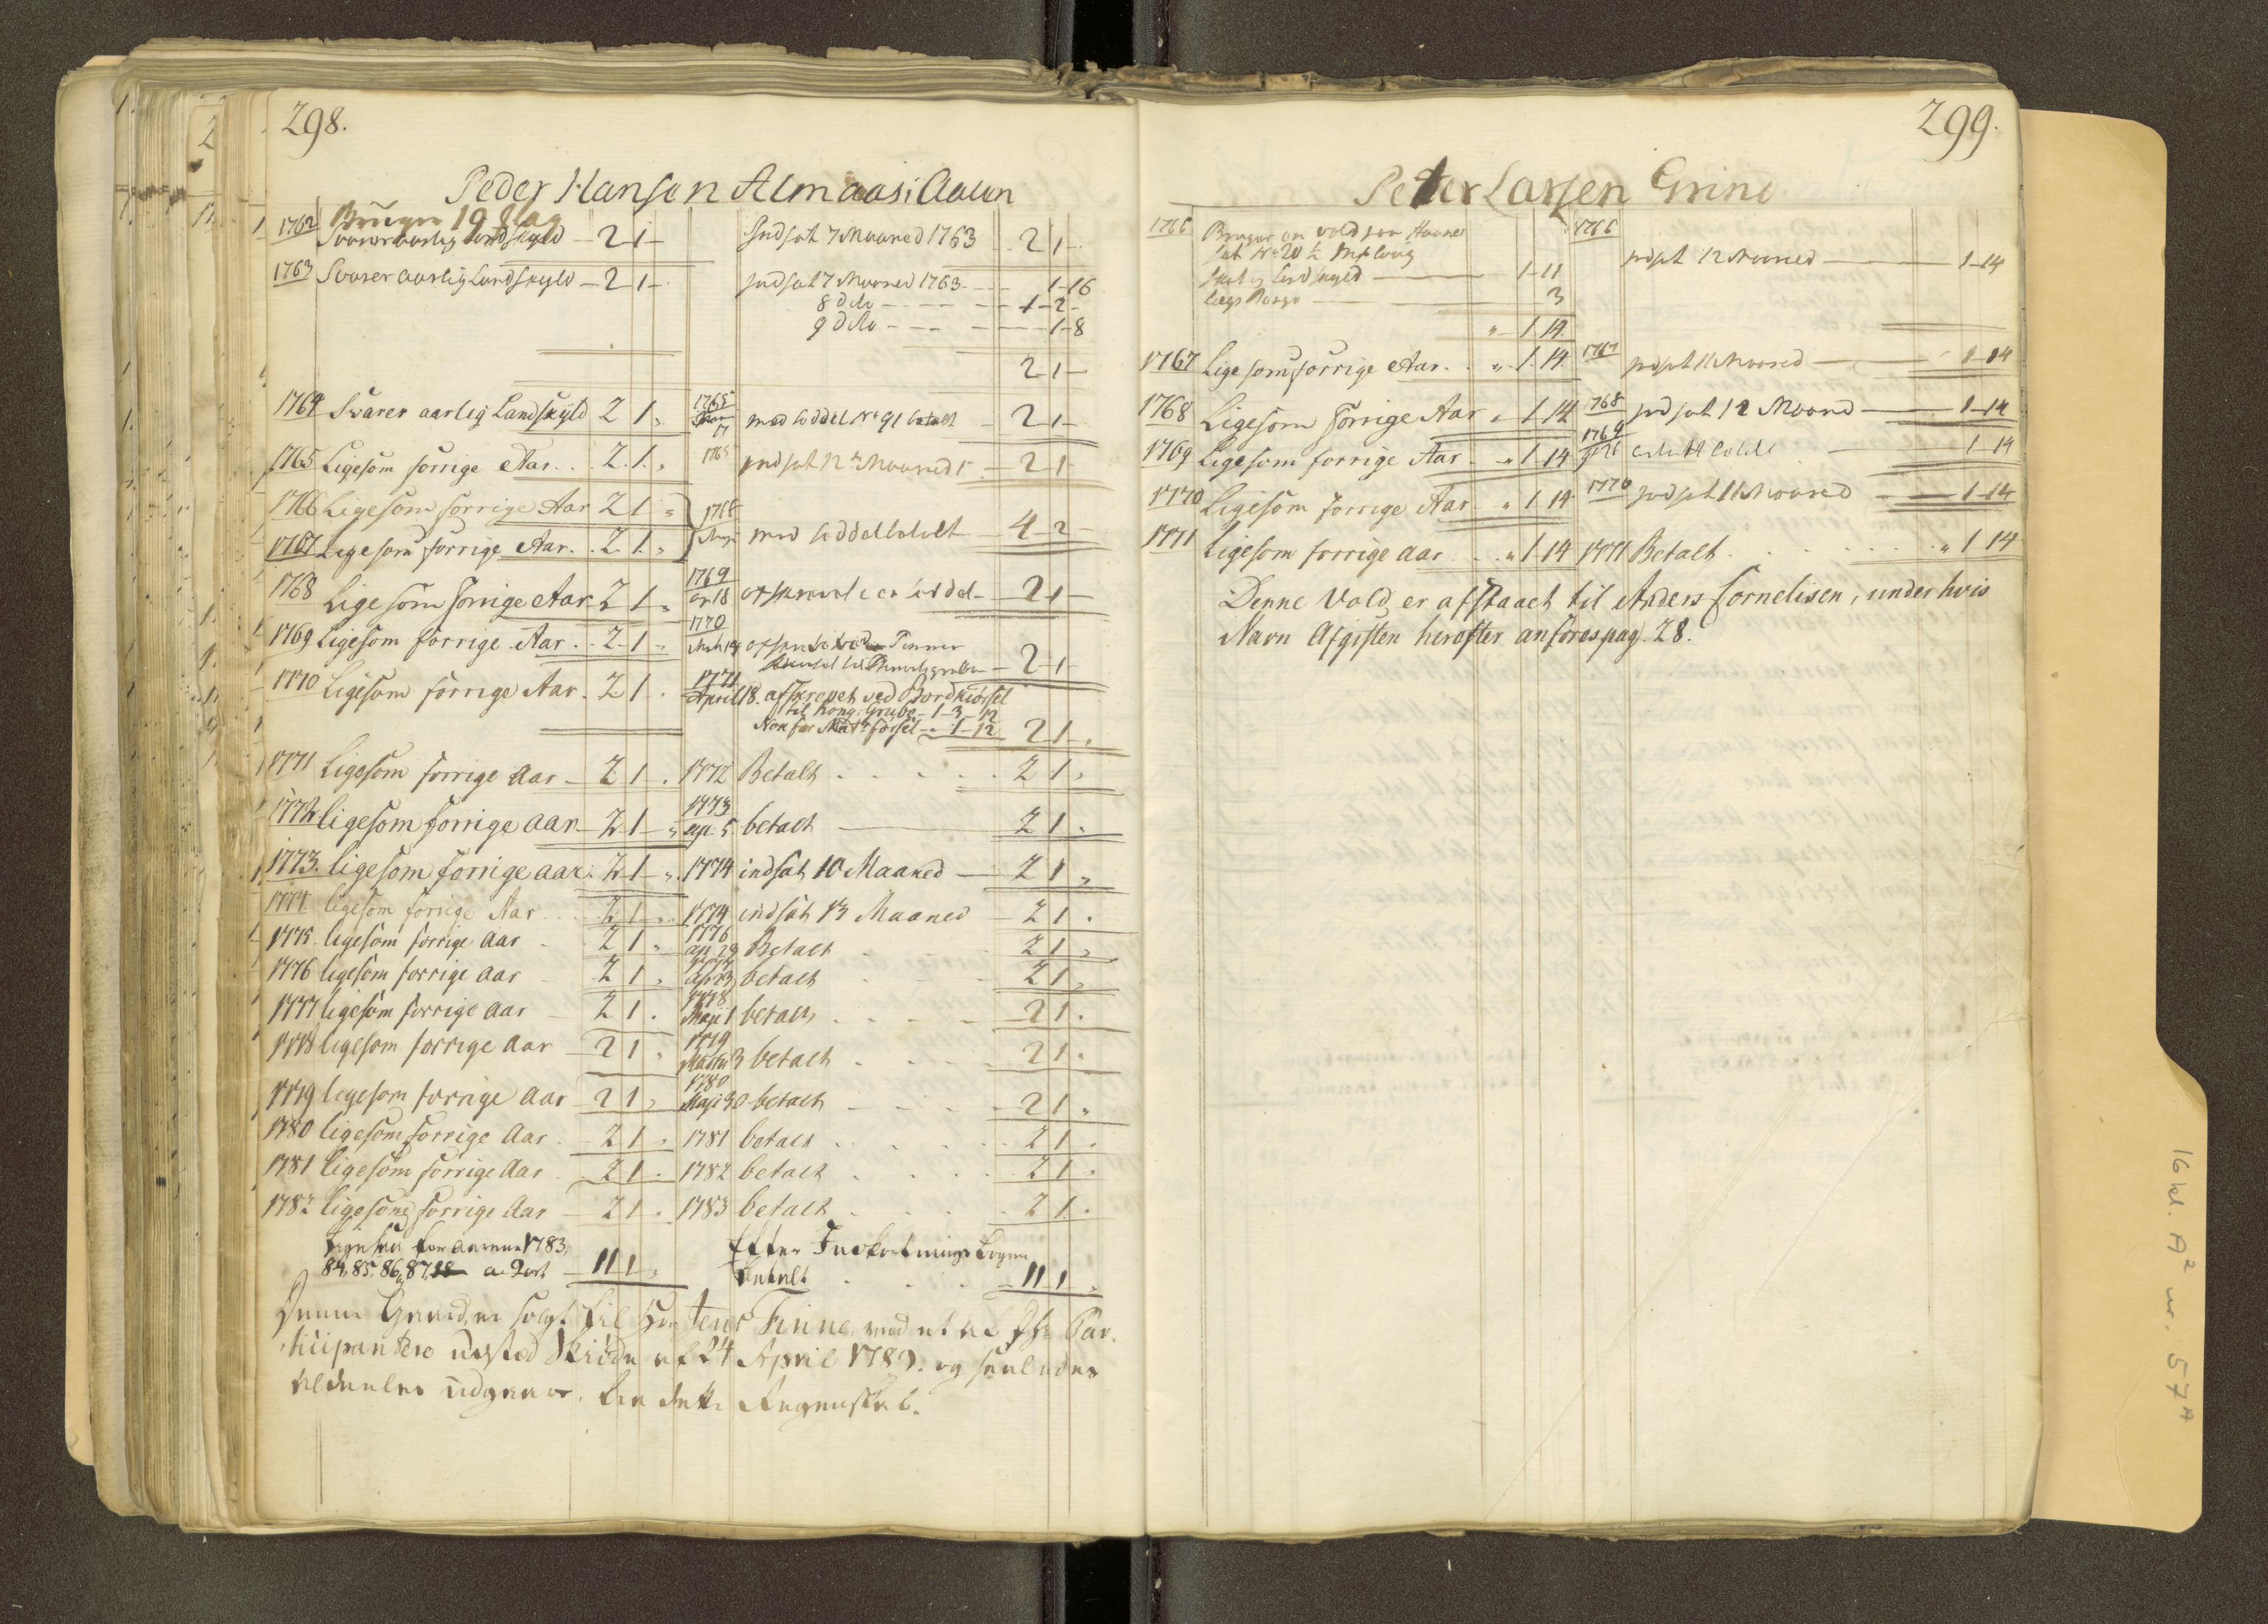 298.
Peder Hansen Almaas i Aalen
1762 Bruger 19 Slag
Svarer aarlig Landskyld 2 1 Indsat 7 Maaned 1763 2 1
1763 Svarer aarlig Landskyld 2 1 Indsat 7 Maaned 1763 1 16
8 dito 1 2
9 dito 1 8
2 1
1764 Svarer aarlig Landskyld 2 1 " 1765 17 med Seddel No 91 betalt 2 1
1765 Ligesom forrige Aar 2 1 " 1765 indsat 12te Maaned 2 1
1766 Ligesom forrige Aar 2 1 " 1768
1767 Ligesom forrige Aar 2 1 " med Seddel betalt 4 2
1768 Ligesom forrige Aar 2 1 " 1769 18 afskrevet Seddel 2 1
1769 Ligesom forrige Aar 2 1 " 1770 14 afskrevet ved Tønner
2 1
1770 Ligesom forrige Aar 2 1 " 1771 April 18. afskrevet ved Bordkiørsel
til Kong. Grube 1 3 12
Nok for Mat. førsel " 1 12 2 1 "
1771 Ligesom forrige Aar 2 1 " 1772 Betalt 2 1 "
1772 ligesom forrige aar 2 1 " 1773 ap. 5 betalt 2 1 "
1773. ligesom forrige aar 2 1 " 1774 indsat 10 Maaned 2 1 "
1774 ligesom forrige Aar 2 1 " 1774 indsat 13 Maaned 2 1 "
1775 ligesom forrige Aar 2 1 " 1776 ap 29 Betalt 2 1 "
1776 ligesom forrige Aar 2 1 " 1777 ap 23 betalt 2 1 "
1777 ligesom forrige Aar 2 1 " 1778 Maji 1 betalt 2 1 "
1778 ligesom forrige Aar 2 1 " 1779 3 betalt 2 1 "
1779 ligesom forrige Aar 2 1 " 1780 Maji 30 betalt 2 1 "
1780 ligesom forrige Aar 2 1 " 1781 betalt 2 1 "
1781 ligesom forrige Aar 2 1 " 1782 betalt 2 1 "
1782 ligesom forrige Aar 2 1 " 1783 betalt 2 1 "
Ligesaa for Aarene 1783, Efter Indkortnings bogen
84, 85, 86, 87, 11 1 " betalt 11 1 "
Denne Gaard er solgt til Hr Jens Finne, med et af Hr. Par-
ticipantere udstæd Skiøde af 24 April 1789. og saaledes
aldeeles udgaaer fra dette Regenskab.
299.
Peter Larsen Grind
1766 Bruger en vold paa Haanes 1766
Sat No 20 1/2 indsat 12 Maaned 1 14
Skat og Landskyld 1 11
3
" 1 14
1767 Ligesom forrige Aar " 1 14 1767 indsat 11 Maaned 1 14
1768 Ligesom forrige Aar " 1 14 1768 indsat 12 Maaned 1 14
1769 Ligesom forrige Aar " 1 14 1769 1 14
1770 Ligesom forrige Aar " 1 14 1770 indsat 11 Maaned 1 14
1771 Ligesom forrige Aar " 1 14 1771 Betalt " 1 14
Denne Vold er afstaaet til Anders Cornelisen, under hvis
Navn Afgiften herefter anføres pag. 28.
16 kl. A² nr. 57A